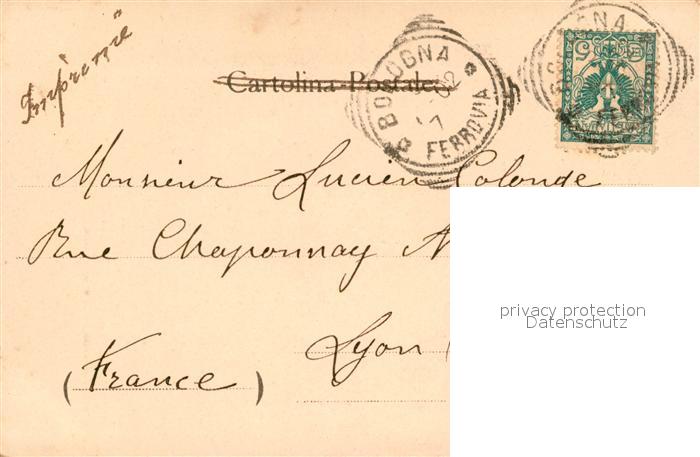 Imprimé
Cartolina Postale
BOLOGNA
FERROVIA
Monsieur Lucien Colonge
Rue Chaponnay N
Lyon (
(France)
privacy protection
Datenschutz